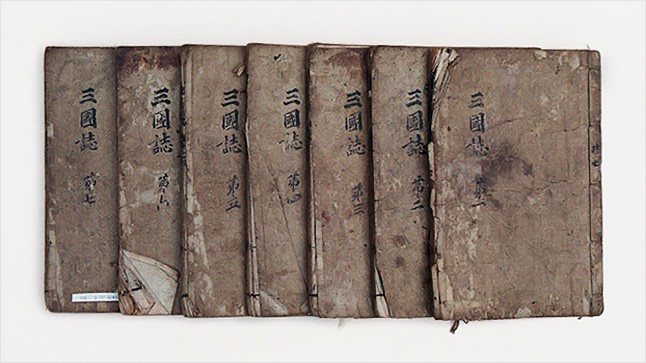 三國誌 第一
三國誌 第二
三國誌 第三
三國誌 第四
三國誌 第五
三國誌 第六
三國誌 第七